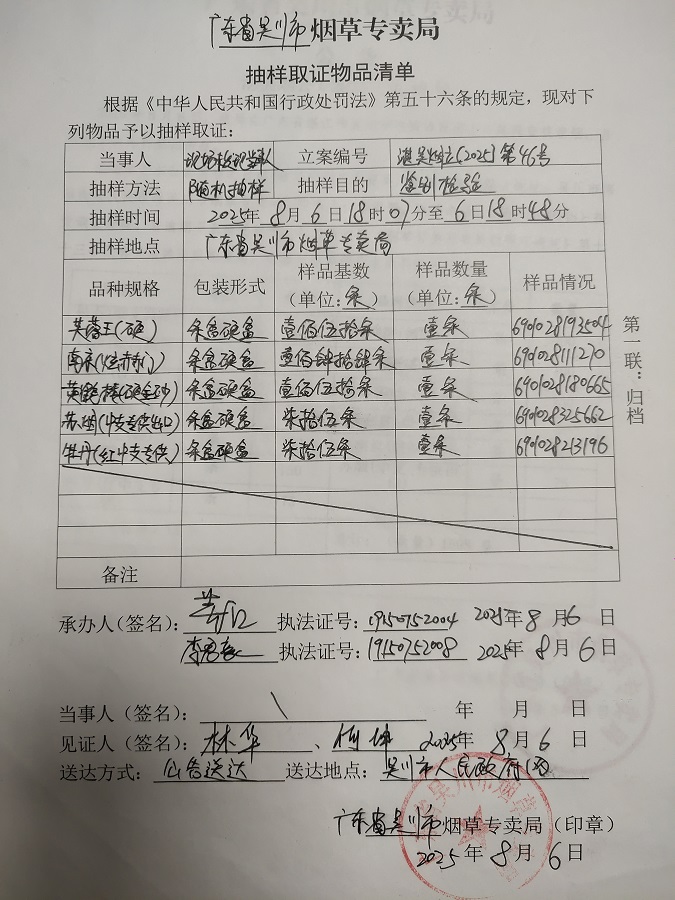 广东省吴川市烟草专卖局
抽样取证物品清单
根据《中华人民共和国行政处罚法》第五十六条的规定，现对下
列物品予以抽样取证：
当事人 立案编号 湛吴烟立[2025]第46号
抽样方法 随机抽样 抽样目的 鉴别检验
抽样时间 2025年8月6日18时07分至6日18时48分
抽样地点 广东省吴川市烟草专卖局
品种规格 包装形式 样品基数（单位：条） 样品数量（单位：条） 样品情况
芙蓉王(硬) 条盒硬盒 壹佰伍拾条 壹条 6901028193504
南京(炫赫门) 条盒硬盒 壹佰肆拾肆条 壹条 6901028111270
黄鹤楼(硬金砂) 条盒硬盒 壹佰伍拾条 壹条 6901028180665
苏烟(中支专供出口) 条盒硬盒 柒拾伍条 壹条 6901028325662
牡丹(红中支专供) 条盒硬盒 柒拾伍条 壹条 6901028213196
第一联：归档
备注
承办人（签名）： 执法证号：19150752004 2025年8月6日
执法证号：19150752008 2025年8月6日
当事人（签名）： 年 月 日
见证人（签名）：林华、 2025年8月6日
送达方式：公告送达 送达地点：吴川市人民政府
广东省吴川市烟草专卖局（印章）
2025年8月6日